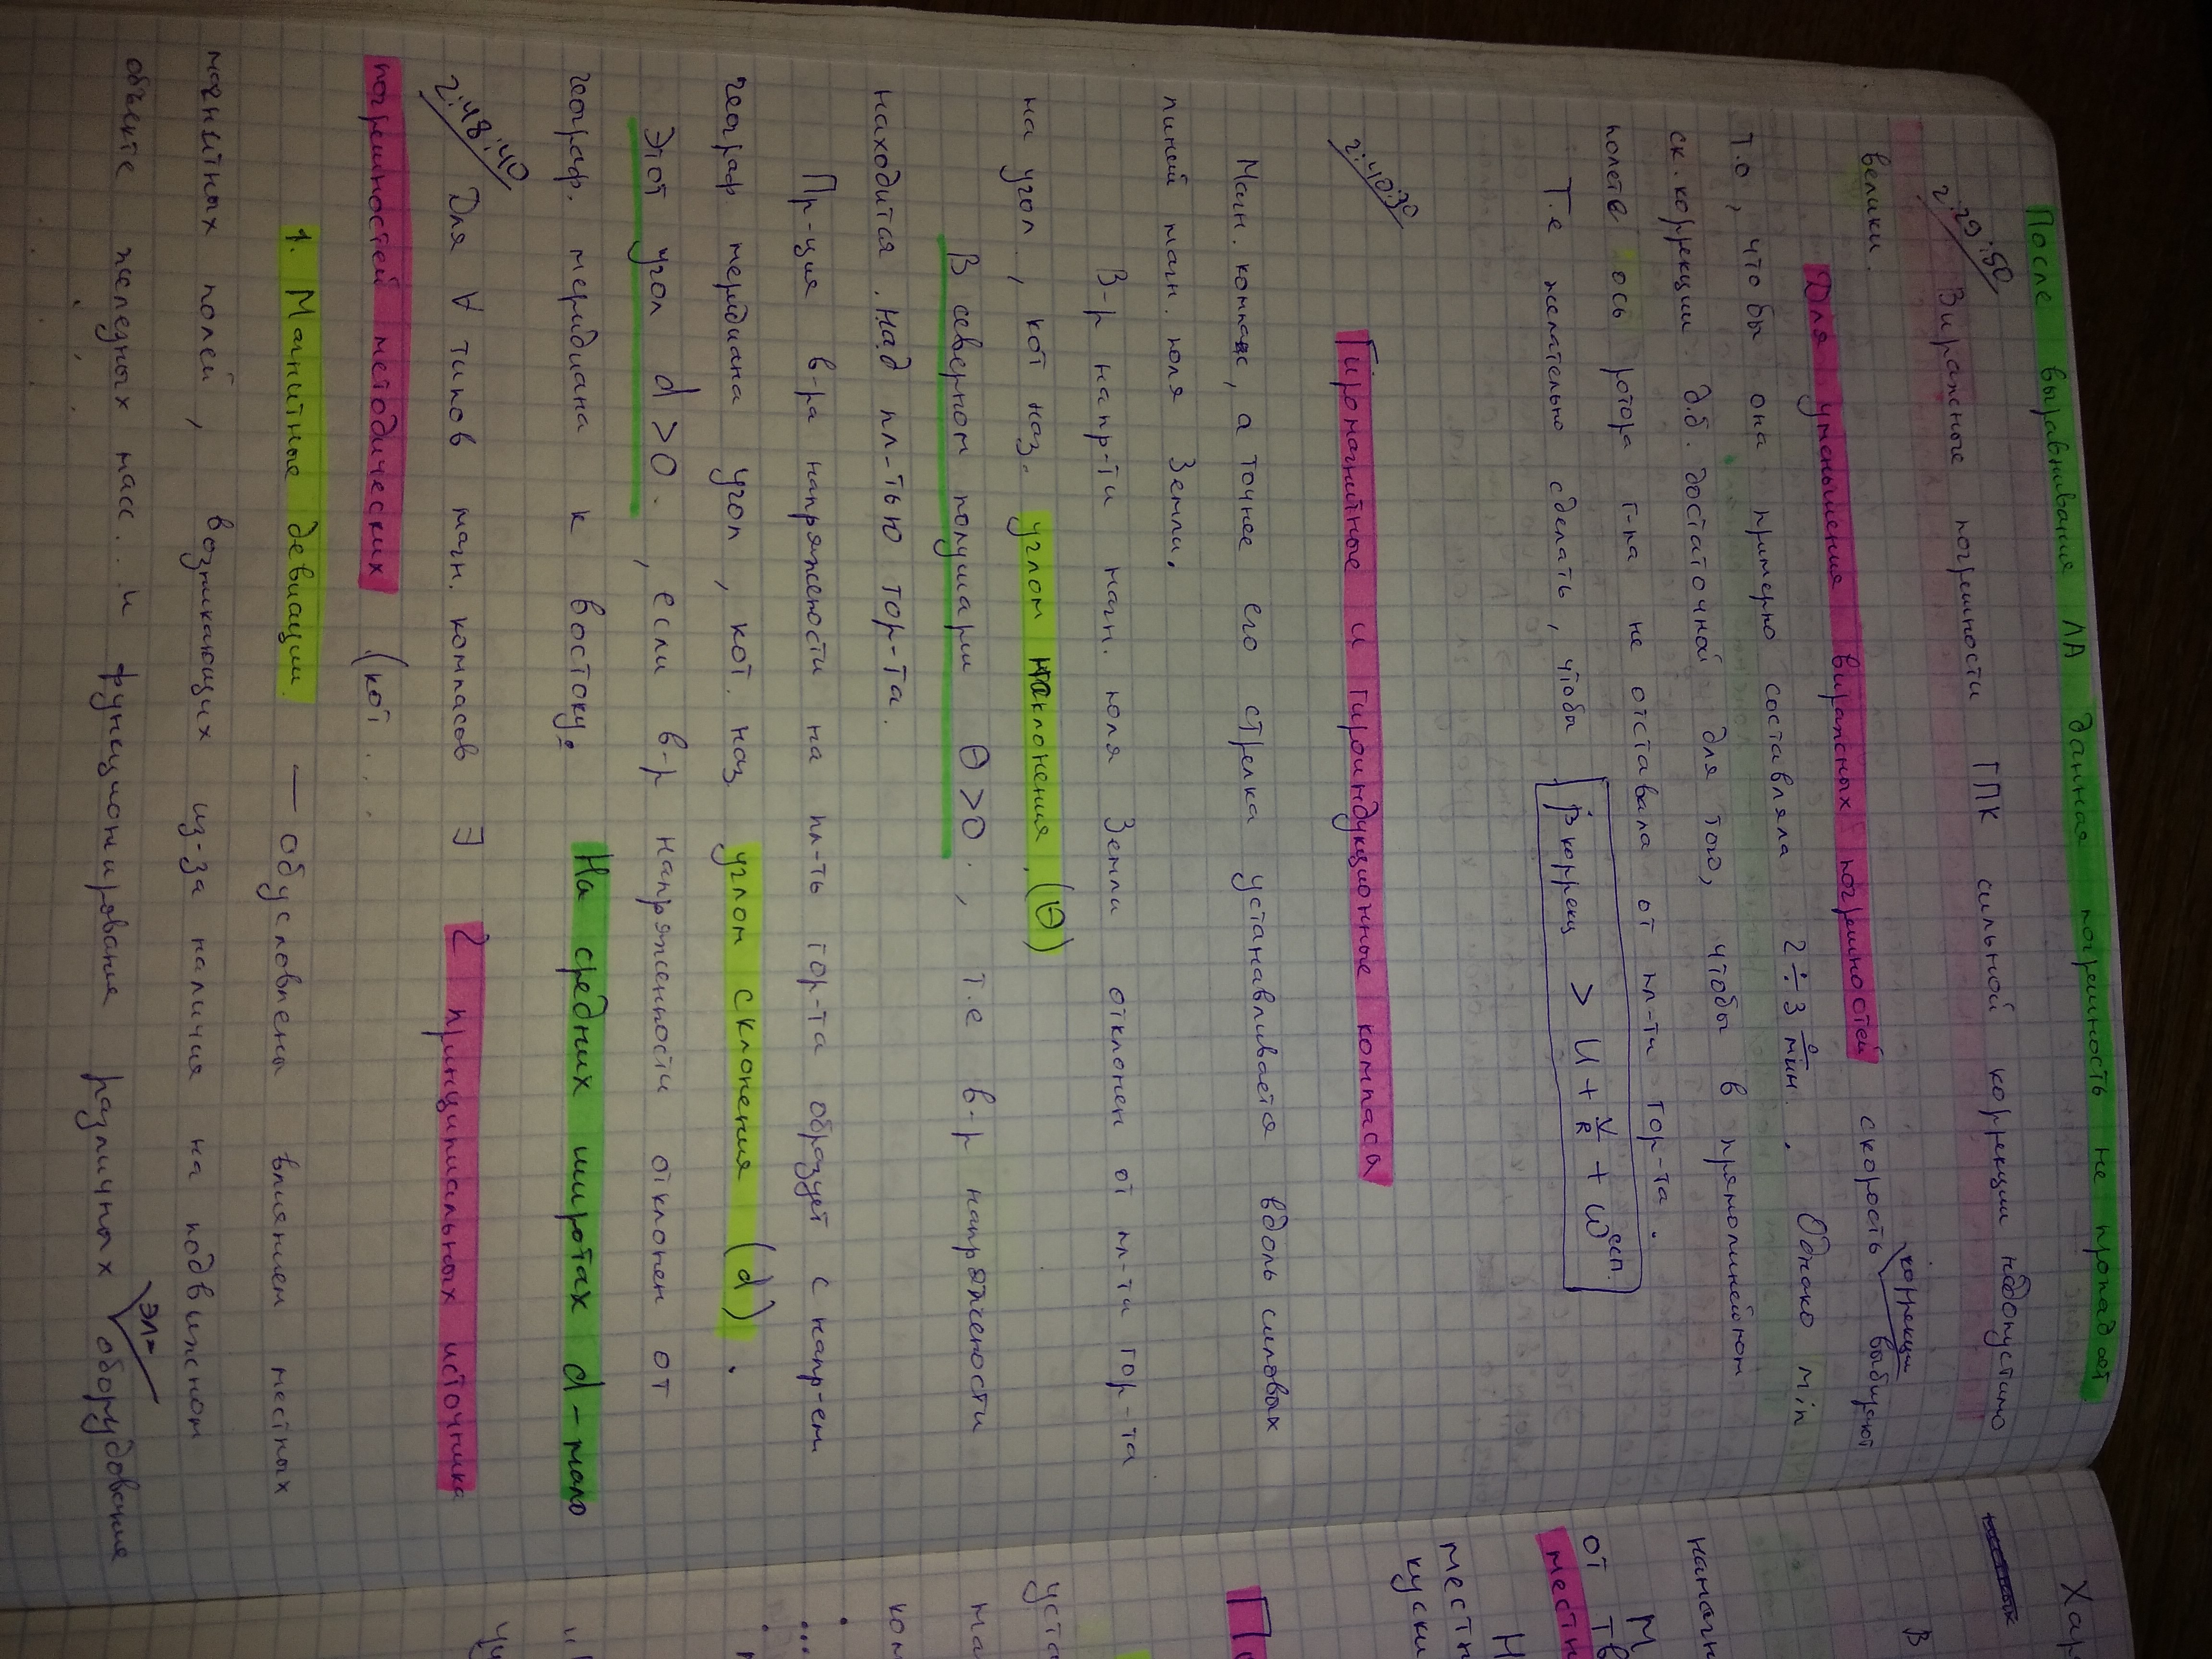 После выравнивания ЛА данная погрешность не пропадёт
2:29:50 Виражные погрешности ГПК сильной коррекции недопустимо
велики.
Для уменьшения виражных погрешностей скорость коррекции выбирают
т.о, чтобы она примерно составляла 2÷3 °/мин. Однако min
ск. коррекции д.б. достаточной для того, чтобы в прямолинейном
полёте ось ротора г-па не отставала от пл-ти гор-та.
Т.е желательно сделать, чтобы β̇ коррекц > U + V/R + ω ссп.
2:40:30
Гиромагнитные и гироиндукционные компаса
Магн. компас, а точнее его стрелка устанавливается вдоль силовых
линий магн. поля Земли.
В-р напр-ти магн. поля Земли отклонен от пл-ти гор-та
на угол, кот наз. углом наклонения (Θ)
В северном полушарии Θ>0, т.е в-р напряжености
находится над пл-тью гор-та.
Пр-ция в-ра напряжености на пл-ть гор-та образует с напр-ем
географ меридиана угол, кот. наз углом склонения (d).
Этот угол d>0, если в-р напряженности отклонен от
географ. меридиана к востоку. На средних широтах d - мало
2:48:40 Для ∀ типов магн. компасов ∃ 2 принципиальных источника
погрешностей методических (кот ...
1. Магнитные девиации — обусловлены влиянием местных
магнитных полей, возникающих из-за наличия на подвижном
объекте железных масс.. и функционирование различных эл= оборудование
Хар
В
намагн
М
от тв
местн
Н
местн
куски
П
уста
ма
ком
...
"